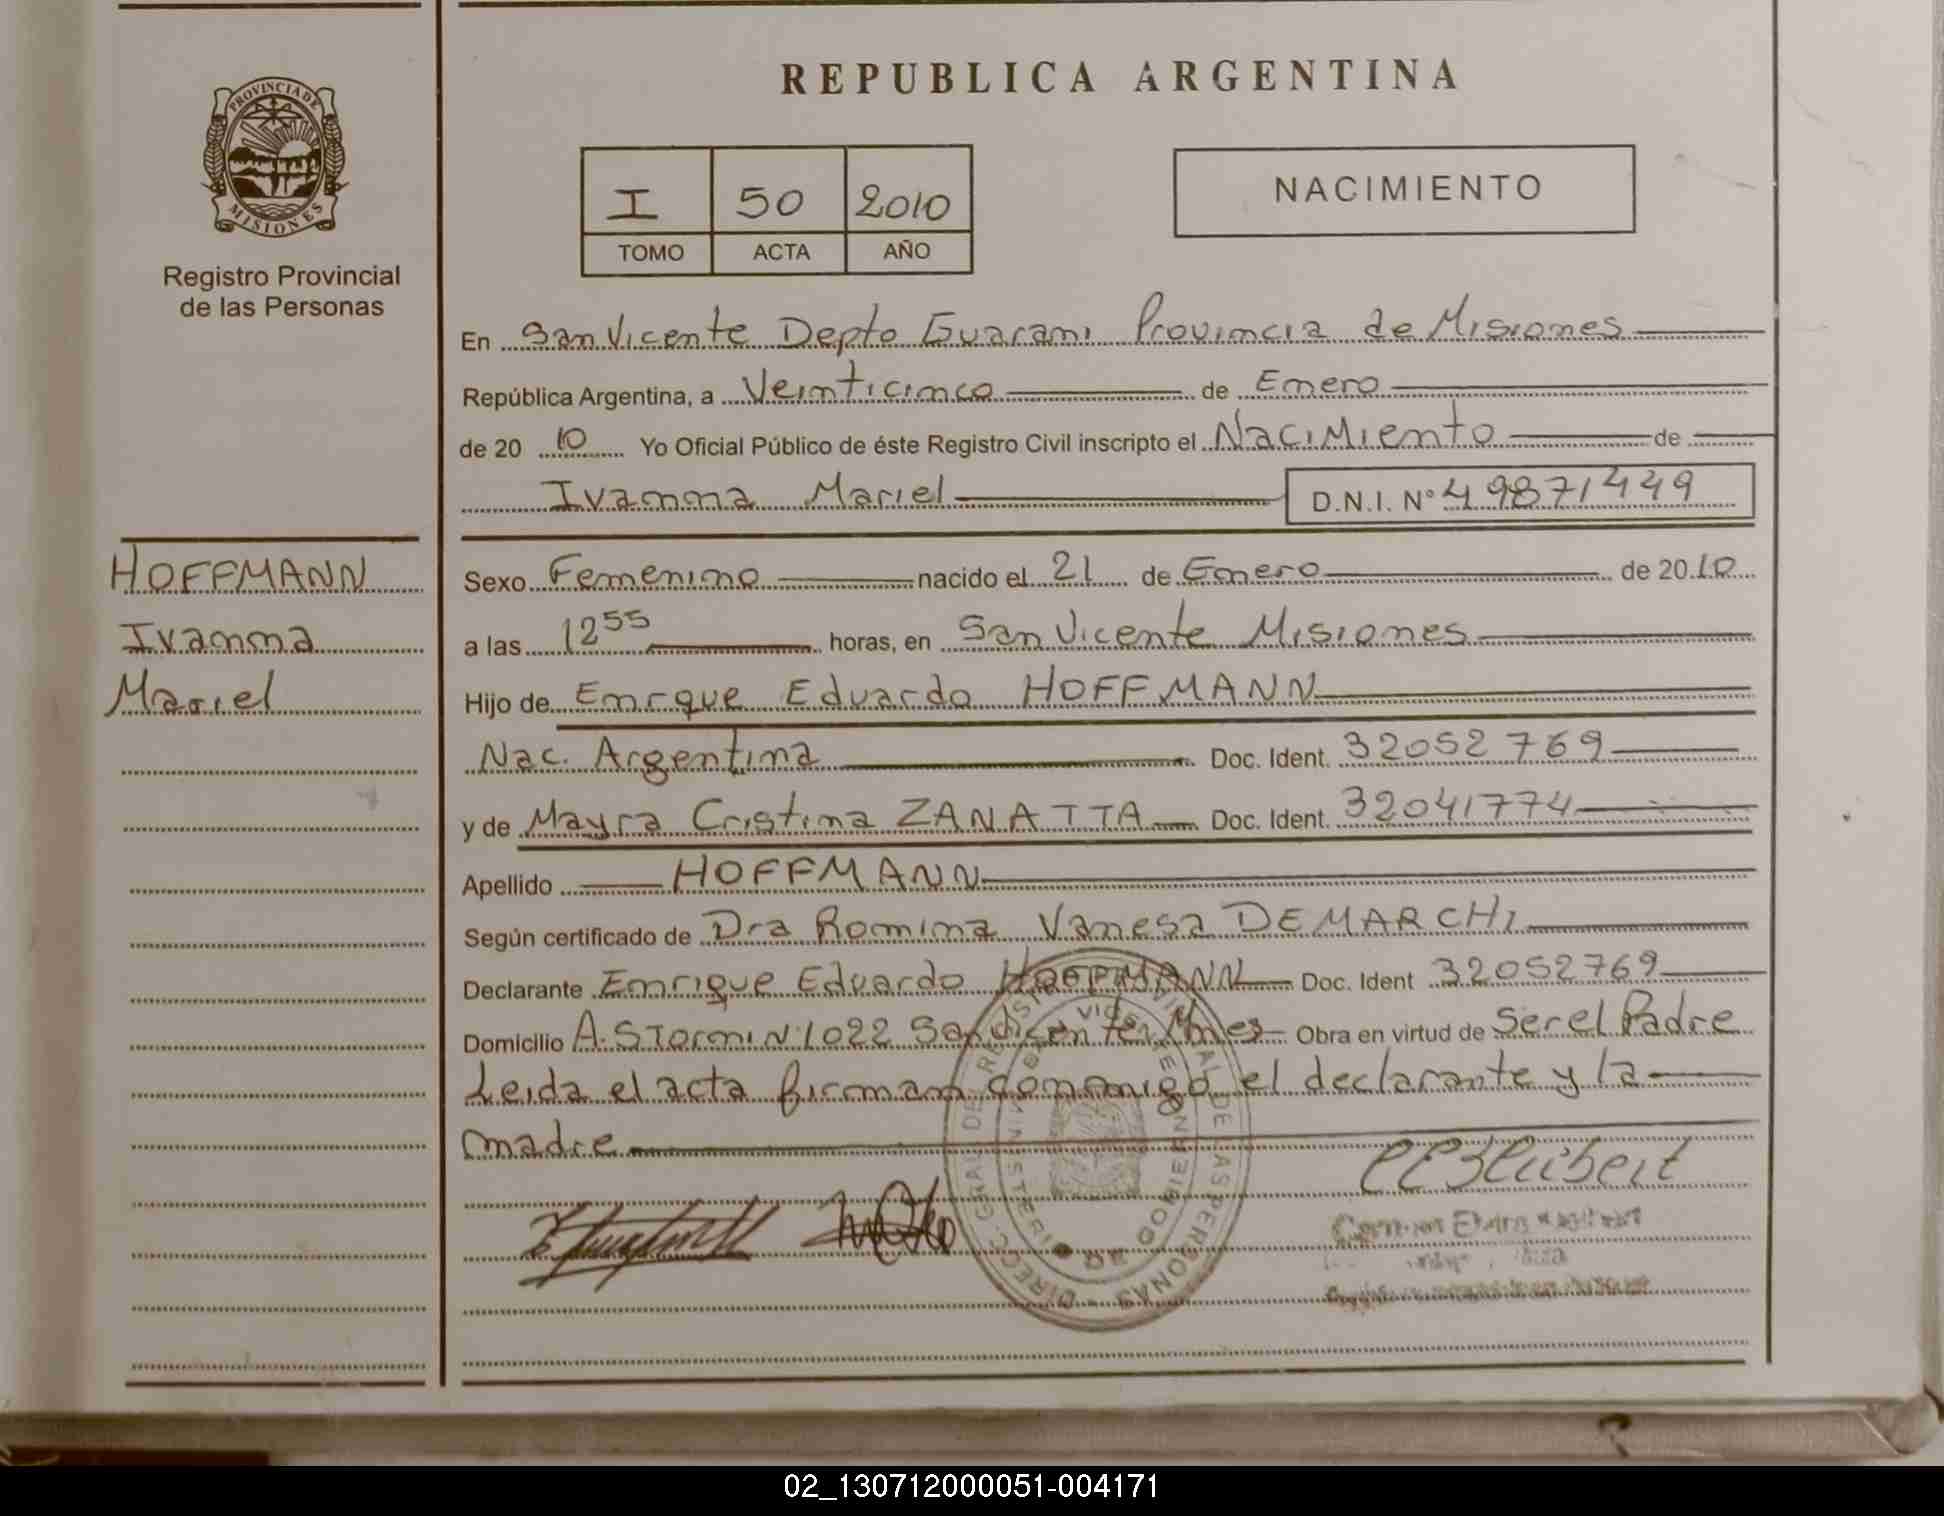 REPUBLICA ARGENTINA
PROVINCIA DE
MISIONES
Registro Provincial
de las Personas
I 50 2010
TOMO ACTA AÑO
NACIMIENTO
En San Vicente Depto Guarani Provincia de Misiones
República Argentina, a Veinticinco de Enero
de 20 10 Yo Oficial Público de éste Registro Civil inscripto el Nacimiento de
Ivanna Mariel D.N.I. Nº 49871449
HOFFMANN
Ivanna
Mariel
Sexo Femenino nacido el 21 de Enero de 2010
a las 12 55 horas, en San Vicente Misiones
Hijo de Enrque Eduardo HOFFMANN
Nac. Argentina Doc. Ident. 32052769
y de Mayra Cristina ZANATTA Doc. Ident. 32041774
Apellido HOFFMANN
Según certificado de Dra Romina Vanesa DEMARCHI
Declarante Enrique Eduardo HOFFMANN Doc. Ident 32052769
Domicilio A. Storni Nº 1022 San Vicente Mnes Obra en virtud de Ser el Padre
Leida el acta firman conmigo el declarante y la
madre
02_130712000051-004171